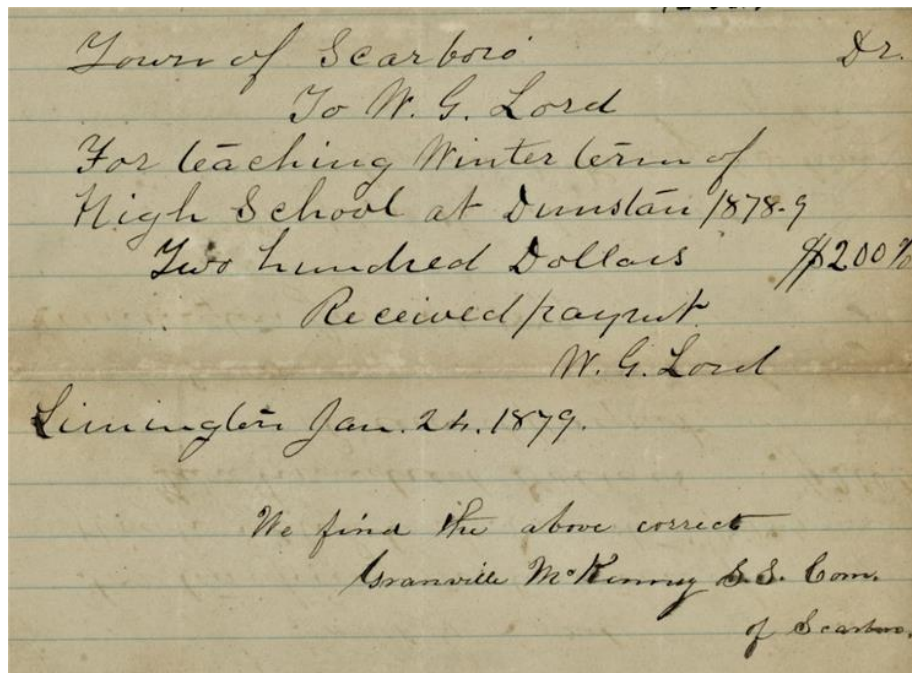 Town of Scarboro' Dr.
To W. G. Lord
For teaching Winter term of
High School at Dunstan 1878-9
Two hundred Dollars $200
Received paymt.
W. G. Lord
Limington Jan. 24. 1879.
We find the above correct
Granville McKenney S. S. Com.
of Scarboro.